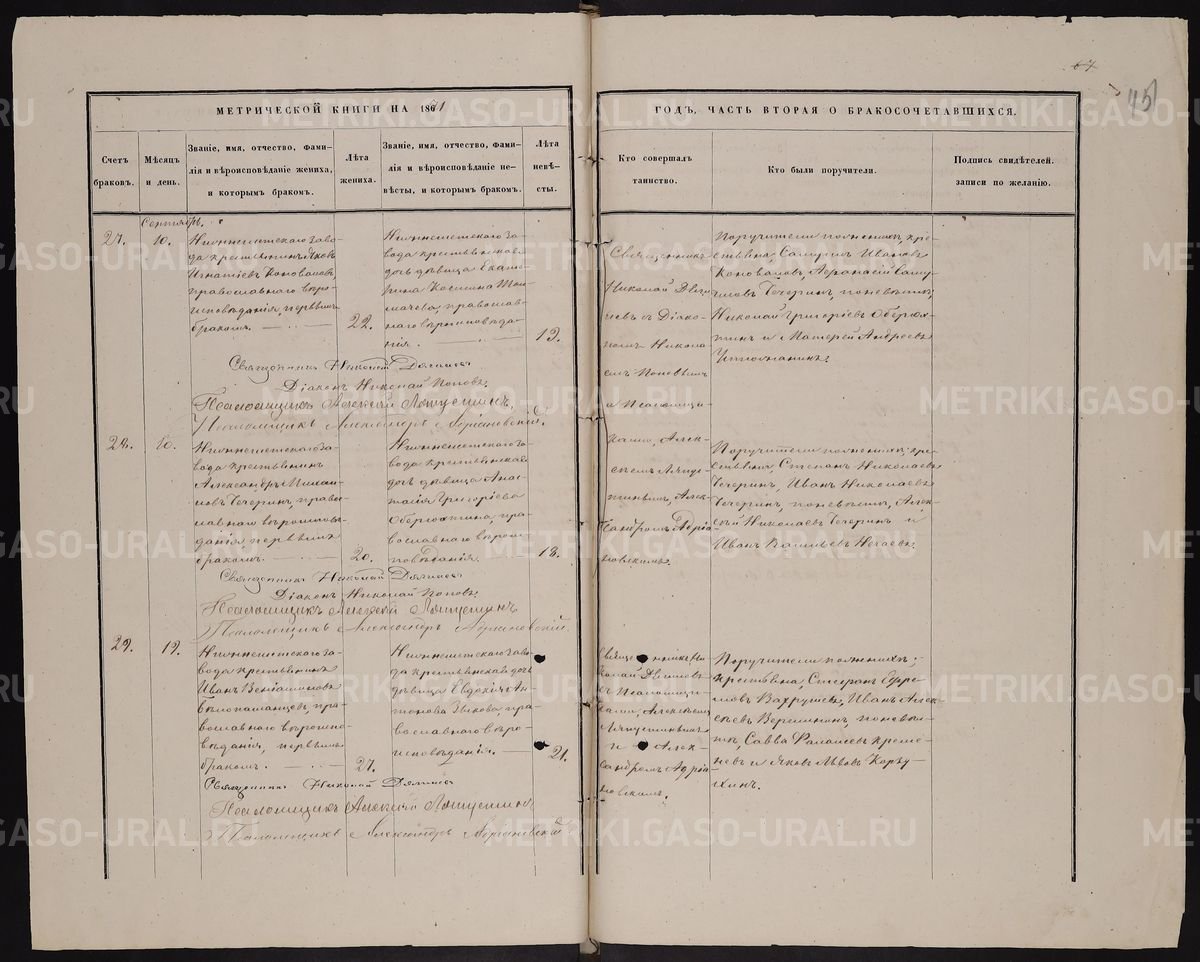 67
45
МЕТРИЧЕСКОЙ КНИГИ НА 1861
ГОДЪ, ЧАСТЬ ВТОРАЯ О БРАКОСОЧЕТАВШИХСЯ.
Счетъ
браковъ.
Мѣсяцъ
и день.
Званіе, имя, отчество, фами-
лія и вѣроисповѣданіе жениха,
и которымъ бракомъ.
Лѣта
жениха.
Званіе, имя, отчество, фами-
лія и вѣроисповѣданіе не-
вѣсты, и которымъ бракомъ.
Лѣта
невѣ-
сты.
Кто совершалъ
таинство.
Кто были поручители.
Подпись свидѣтелей.
записи по желанію.
Сентябрь.
27.
10.
вода крестьянинъ Яковъ
Игнатіевъ Коноваловъ
православнаго вѣро-
исповѣданія, первымъ
бракомъ.
22.
вода крестьянская
дочь дѣвица Екате-
рина Козмина
православ-
наго вѣроисповѣда-
нія.
19.
Священникъ
Николай
съ Діако-
номъ Никола-
емъ Поповымъ
и Псаломщи-
ками, Алек-
сѣемъ Ляпус-
тинымъ, Алек-
сандромъ Адріа-
новскимъ.
Поручители по женихѣ, кре-
стьяне, Самуилъ Ивановъ
Коноваловъ, Афанасій Саму-
иловъ Чечеринъ, по невѣстѣ,
Николай Григоріевъ Оберюх-
тинъ и Матфей Андреевъ
Священникъ Николай
Діаконъ Николай Поповъ.
Псаломщикъ Алексѣй Ляпустинъ,
Псаломщикъ Александръ Адріановскій.
28.
10.
вода крестьянинъ
Александръ Михаи-
ловъ Чечеринъ, право-
славнаго вѣроисповѣ-
данія первымъ
бракомъ.
20.
вода крестьянская
дочь дѣвица Анас-
тасія Григоріева
Оберюхтина, пра-
вославнаго вѣрои-
сповѣданія.
18.
Поручители по женихѣ кре-
стьяне, Степанъ Николаевъ
Чечеринъ, Иванъ Николаевъ
Чечеринъ, по невѣстѣ, Алек-
сѣй Николаевъ Чечеринъ и
Иванъ Васильевъ Нечаевъ.
Священникъ Николай
Діаконъ Николай Поповъ.
Псаломщикъ Алексѣй Ляпустинъ
Псаломщикъ Александръ Адріановскій.
29.
19.
вода крестьянинъ
Иванъ Веніаминовъ
пра-
вославнаго вѣроиспо-
вѣданія, первымъ
бракомъ.
27.
да крестьянская дочь
дѣвица Евдокія Ан-
тонова Зыкова, пра-
вославнаго вѣро-
исповѣданія.
21.
Священникъ Ни-
колай
съ Псаломщи-
ками, Алексѣемъ
Ляпустинымъ
и Алек-
сандромъ Адріа-
новскимъ.
Поручители по женихѣ,
крестьяне, Стефанъ Ефре-
мовъ Вахрушевъ, Иванъ Алек-
сѣевъ Вершининъ, по невѣс-
тѣ, Савва
и Яковъ Львовъ
Священникъ Николай
Псаломщикъ Алексѣй Ляпустинъ
Псаломщикъ Александръ Адріановскій
METRIKI.GASO-URAL.RU